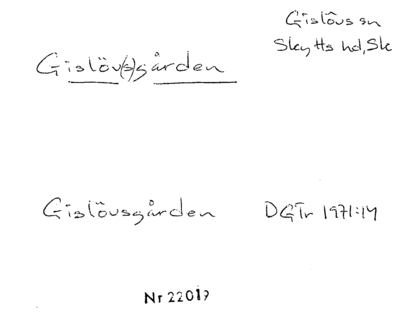 Gislövs sn
Skytts hd, Sk
Gislöv(s)gården
Gislövsgården DGTr 1971:14
Nr 22017